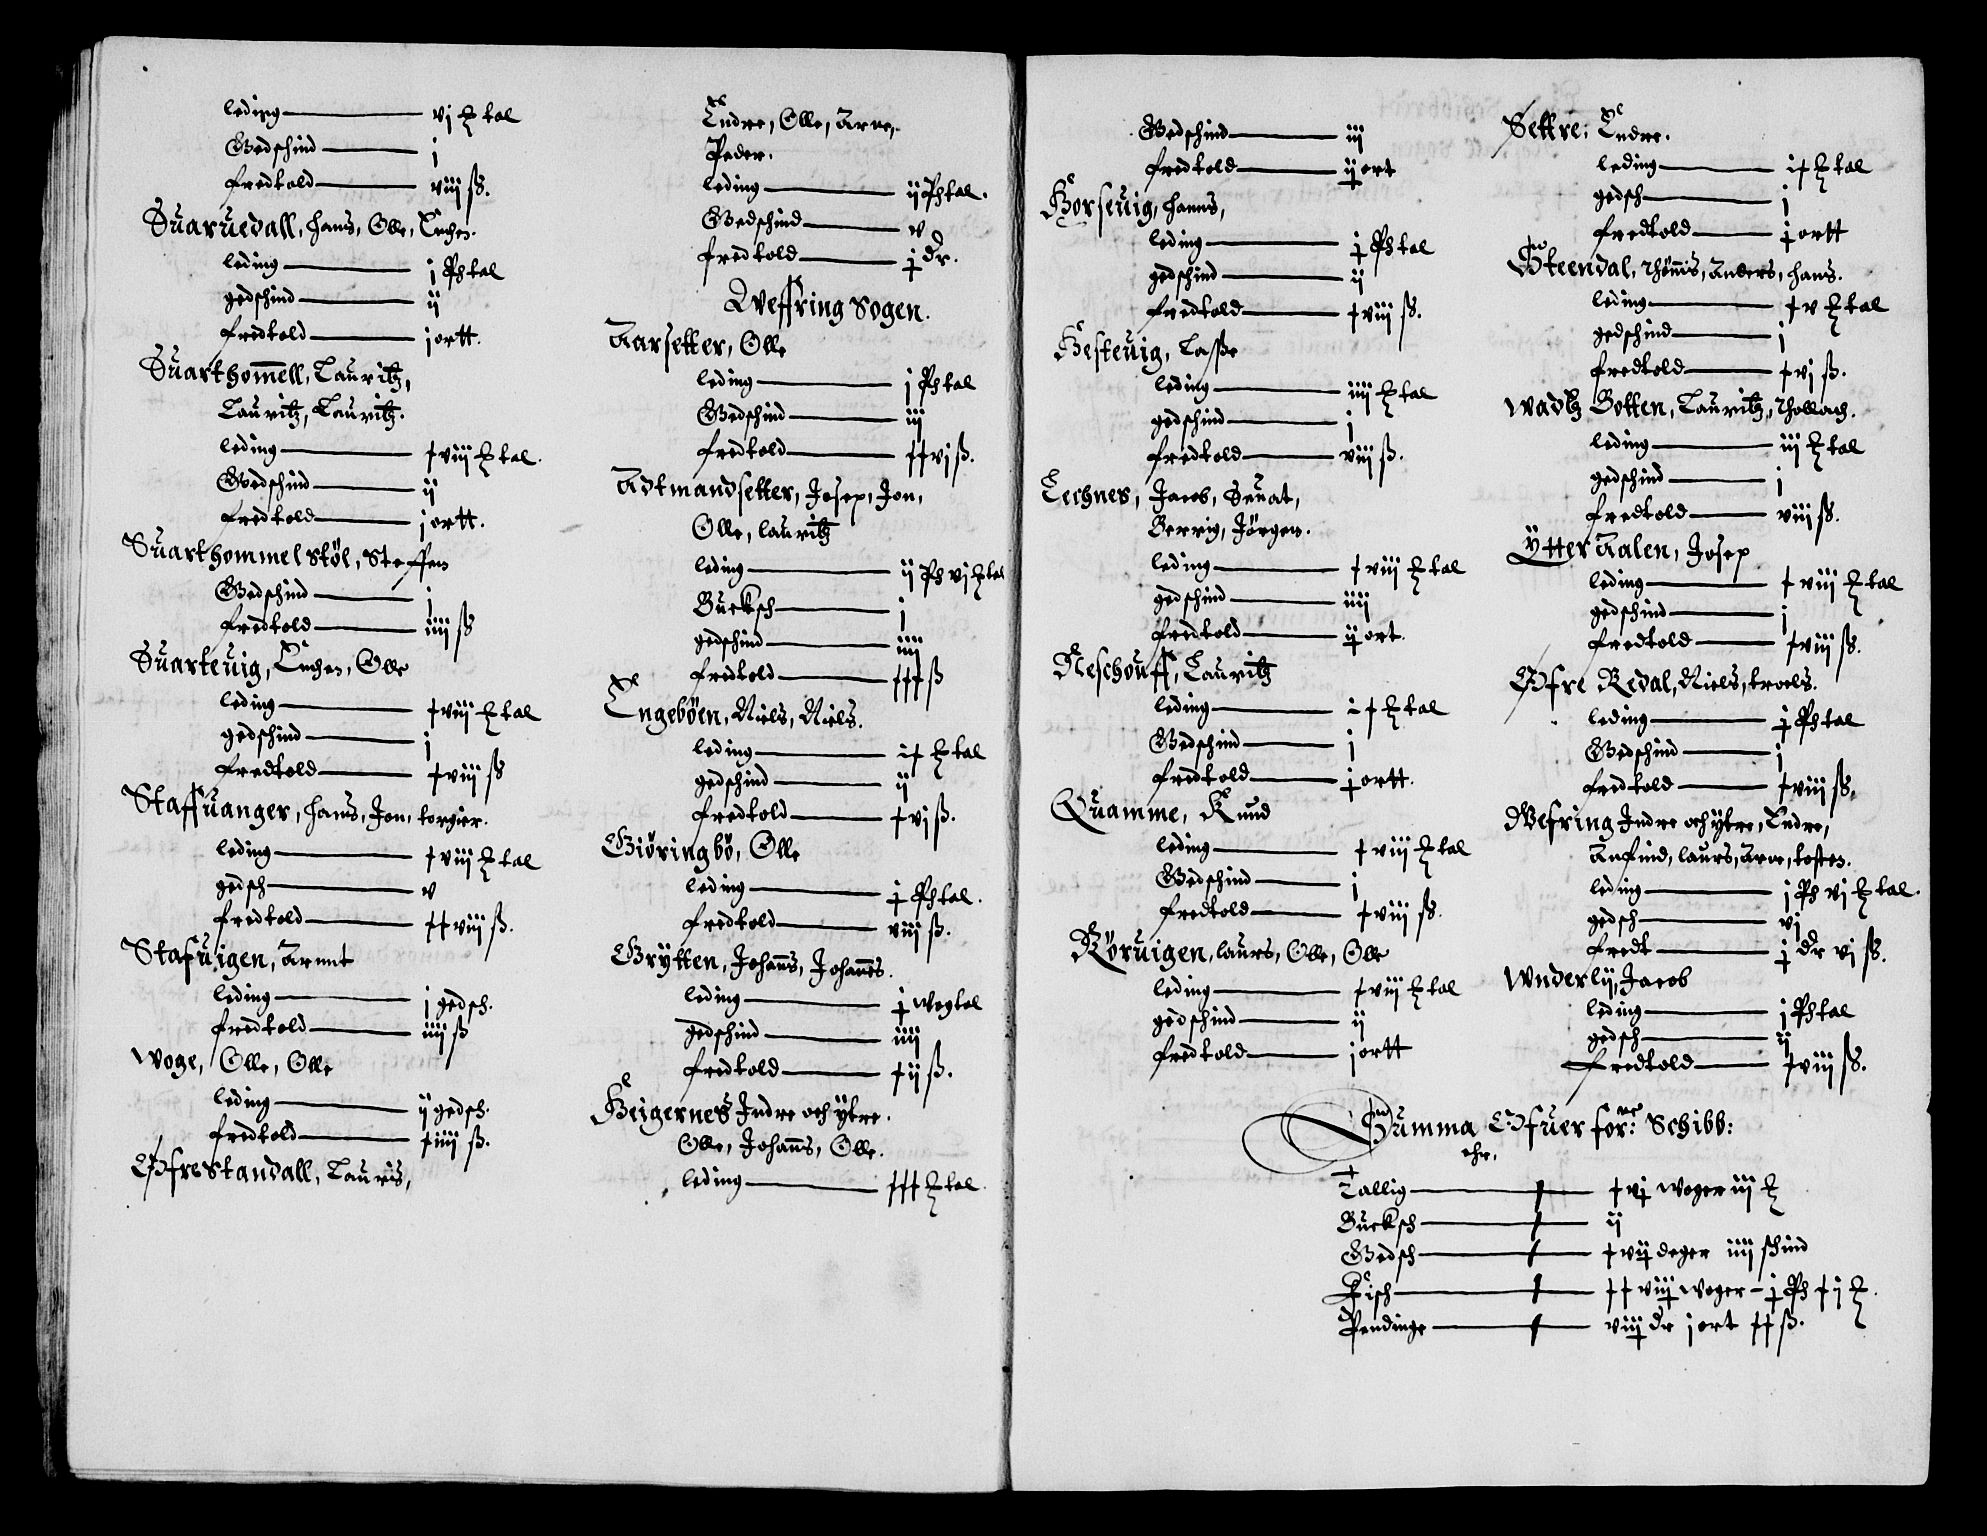 leding — vj ℔ tal
Gedschind — j
fredtold — viij ß.
Suaruedall, hans, Olle,
leding — j Ph tal
gedschind — ij
fredtold — j ortt.
Suarthom̄ell, Lauritz,
Lauritz, Lauritz.
leding — xviij ℔ tal.
Gedschind — ij
fredtold — j ortt.
Suarthommelstöl, Steffen
Gedschind — j
fredtold — iiij ß
Suarteuig, Olle
leding — xviij ℔ tal
gedschind — j
fredtold — xviij ß
Staffuanger, hans, Jon, torgier.
leding — xviij ℔ tal
gedsch — v
fredtold — xxviij ß.
Stafuigen, Arnnt
leding — j gedsch.
fredtold — iiij ß
Woge, Olle, Olle
leding — ij gedsch.
fredtold — xiiij ß.
Offrestandall, Lauris,
Endre, Olle, Arne,
Peder.
leding — ij Ph tal.
Gedschind — v
fredtold — ɉ dr.
Qveffring Sogen.
Aarsetter, Olle
leding — j Ph tal
Gedschind — iij
fredtold — xxvj ß.
Adtmandsetter, Josep, Jon,
Olle, lauritz
leding — ij Ph vj ℔ tal
Bucksch — j
gedschind — iiij
fredtold — xxx ß
Engeböen, Niels, Niels.
leding — ix ℔ tal
gedschind — ij
fredtold — xvj ß.
Giöringbö, Olle
leding — ɉ Ph tal.
fredtold — viij ß.
Grytten, Johan̄s, Johan̄es.
leding — ɉ wog tal
gedschind — iiij
fredtold — xij ß.
Heigernes Indre och ÿtre.
Olle, Johan̄s, Olle.
leding — xxx ℔ tal
Gedschind — iij
fredtold — iɉ ort
Horseuig, hanns,
leding — ɉ Ph tal
gedschind — ij
fredtold — xviij ß.
Hesteuig, Lasse
leding — iiij ℔ tal
gedschind — j
fredtold — viij ß.
Lechnes, Jacob, Siuat,
Berrig, Jörgen.
leding — xviij ℔ tal
gedschind — iiij
fredtold — iɉ ort.
Neschouff, Lauritz
leding — ix ℔ tal
Gedschind — j
fredtold — ɉ ortt.
Quamme, Knud
leding — xviij ℔ tal
Gedschind — j
fredtold — xviij ß.
Röruigen, laurs, Olle, Olle
leding — xviij ℔ tal
gedschind — ij
fredtold — j ortt
Settre, Endre.
leding — ix ℔ tal
gedsch — j
fredtold — ɉ ortt
Steendal, Thön̄is, Anders, hans.
leding — xv ℔ tal
gedschind — j
fredtold — xvj ß.
Wadtz Botten, Lauritz, Thollach.
leding — iij ℔ tal
gedschind — j
fredtold — viij ß.
Ytter Aalen, Josep
leding — xviij ℔ tal
gedschind — j
fredtold — xviij ß.
Offre Redal, Niels, troels.
leding — ɉ Ph tal
Gedschind — j
fredtold — xviij ß.
Qvefring Indre och ÿtre, Endre,
Anfind, laurs, Arne, tosten.
leding — j Ph vj ℔ tal.
gedsch — vj
fredt — ɉ dr vj ß.
Wnderlij, Jacob
leding — j Ph tal
gedsch — ij
fredtold — xviij ß.
Summa Offuer for:ne Schibb:
ehr,
Tallig — xvɉ woger iij ℔
Bucksch — ij
Gedsch — xviɉ deger iiij schind
Fisch — xxviiɉ woger – ɉ Ph xj ℔.
Pendinge — viiɉ dr j ort xx ß.